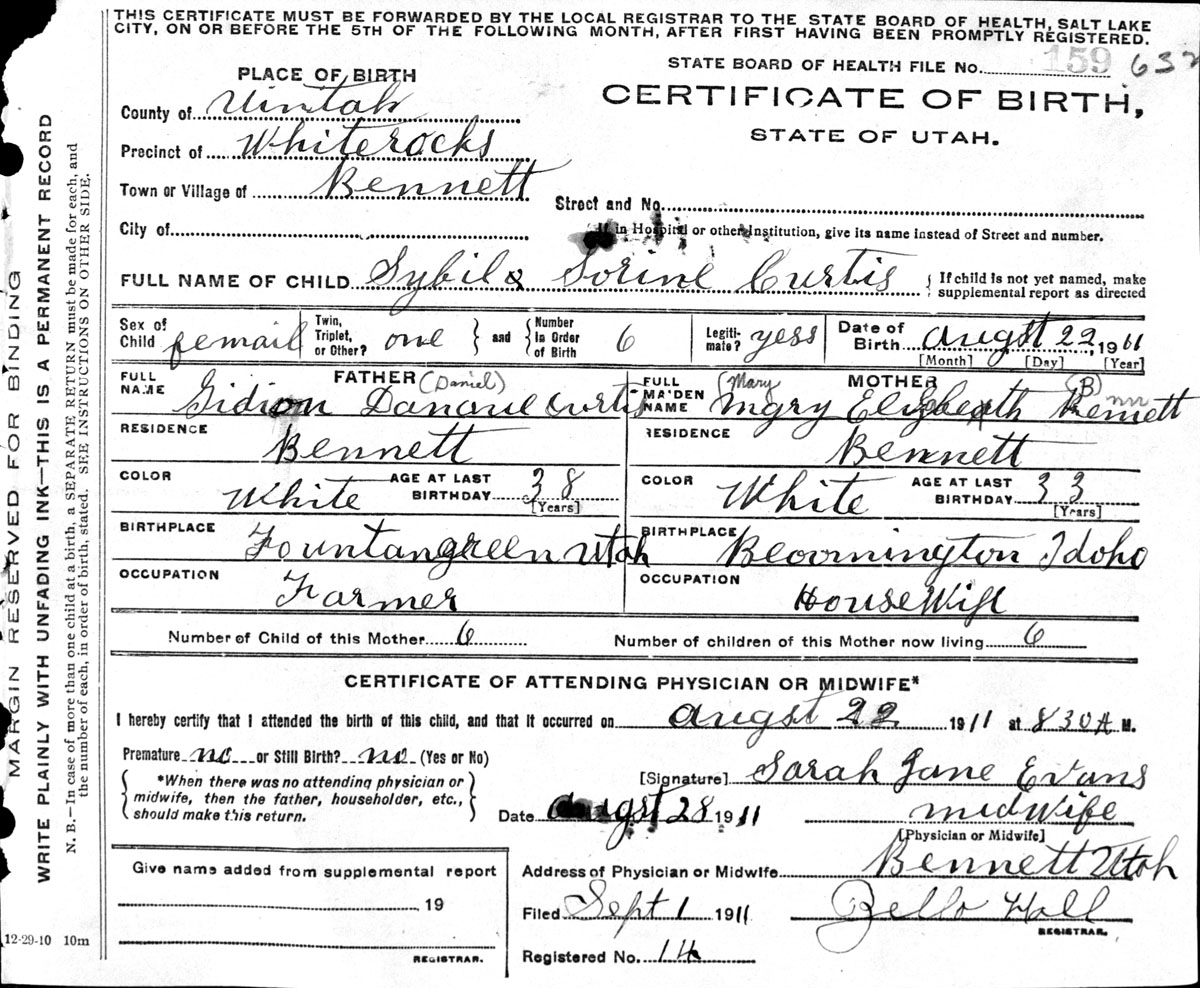 THIS CERTIFICATE MUST BE FORWARDED BY THE LOCAL REGISTRAR TO THE STATE BOARD OF HEALTH, SALT LAKE
CITY, ON OR BEFORE THE 5TH OF THE FOLLOWING MONTH, AFTER FIRST HAVING BEEN PROMPTLY REGISTERED.
STATE BOARD OF HEALTH FILE No. 159 632
PLACE OF BIRTH
CERTIFICATE OF BIRTH,
STATE OF UTAH.
County of Uintah
Precinct of Whiterocks
Town or Village of Bennett
Street and No.
City of
If in Hospital or other Institution, give its name instead of Street and number.
FULL NAME OF CHILD Sybil Sorine Curtis { If child is not yet named, make
supplemental report as directed
Sex of Child femail
Twin, Triplet, or Other? one } and { Number In Order of Birth 6
Legiti-mate? yess
Date of Birth augst 22, 1911
[Month] [Day] [Year]
FULL NAME FATHER (Daniel)
Gidion Danauel Curtis
FULL MAIDEN NAME (Mary) MOTHER (B)
Mary Elizbeath Bennett
RESIDENCE Bennett
RESIDENCE Bennett
COLOR White AGE AT LAST BIRTHDAY 38 [Years]
COLOR White AGE AT LAST BIRTHDAY 33 [Years]
BIRTHPLACE Fountangreen Utah
BIRTHPLACE Bloomington Idoho
OCCUPATION Farmer
OCCUPATION HouseWife
Number of Child of this Mother 6 Number of children of this Mother now living 6
CERTIFICATE OF ATTENDING PHYSICIAN OR MIDWIFE*
I hereby certify that I attended the birth of this child, and that it occurred on augst 22 1911 at 830 A M.
Premature no or Still Birth? no (Yes or No)
{ *When there was no attending physician or
midwife, then the father, householder, etc.,
should make this return. }
[Signature] Sarah Jane Evans
Date augst 28 1911 midwife
[Physician or Midwife]
Give name added from supplemental report
19
REGISTRAR.
Address of Physician or Midwife Bennett Utah
Filed Sept 1 1911 Hall
REGISTRAR.
Registered No. 14
12-29-10 10m
MARGIN RESERVED FOR BINDING
WRITE PLAINLY WITH UNFADING INK—THIS IS A PERMANENT RECORD
N. B.—In case of more than one child at a birth, a SEPARATE RETURN must be made for each, and
the number of each, in order of birth, stated. SEE INSTRUCTIONS ON OTHER SIDE.